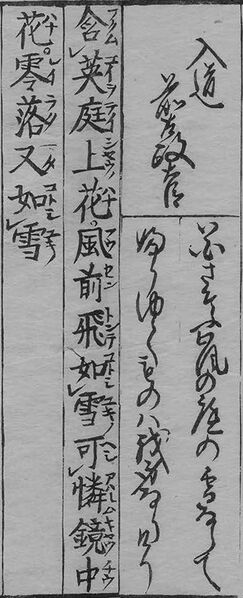 入道
前太政大臣
花さそふ嵐の庭の雪ならて
ふりゆくものハ我身なりけり
含英庭上花。風前飛如雪可憐鏡中
花零落又如雪